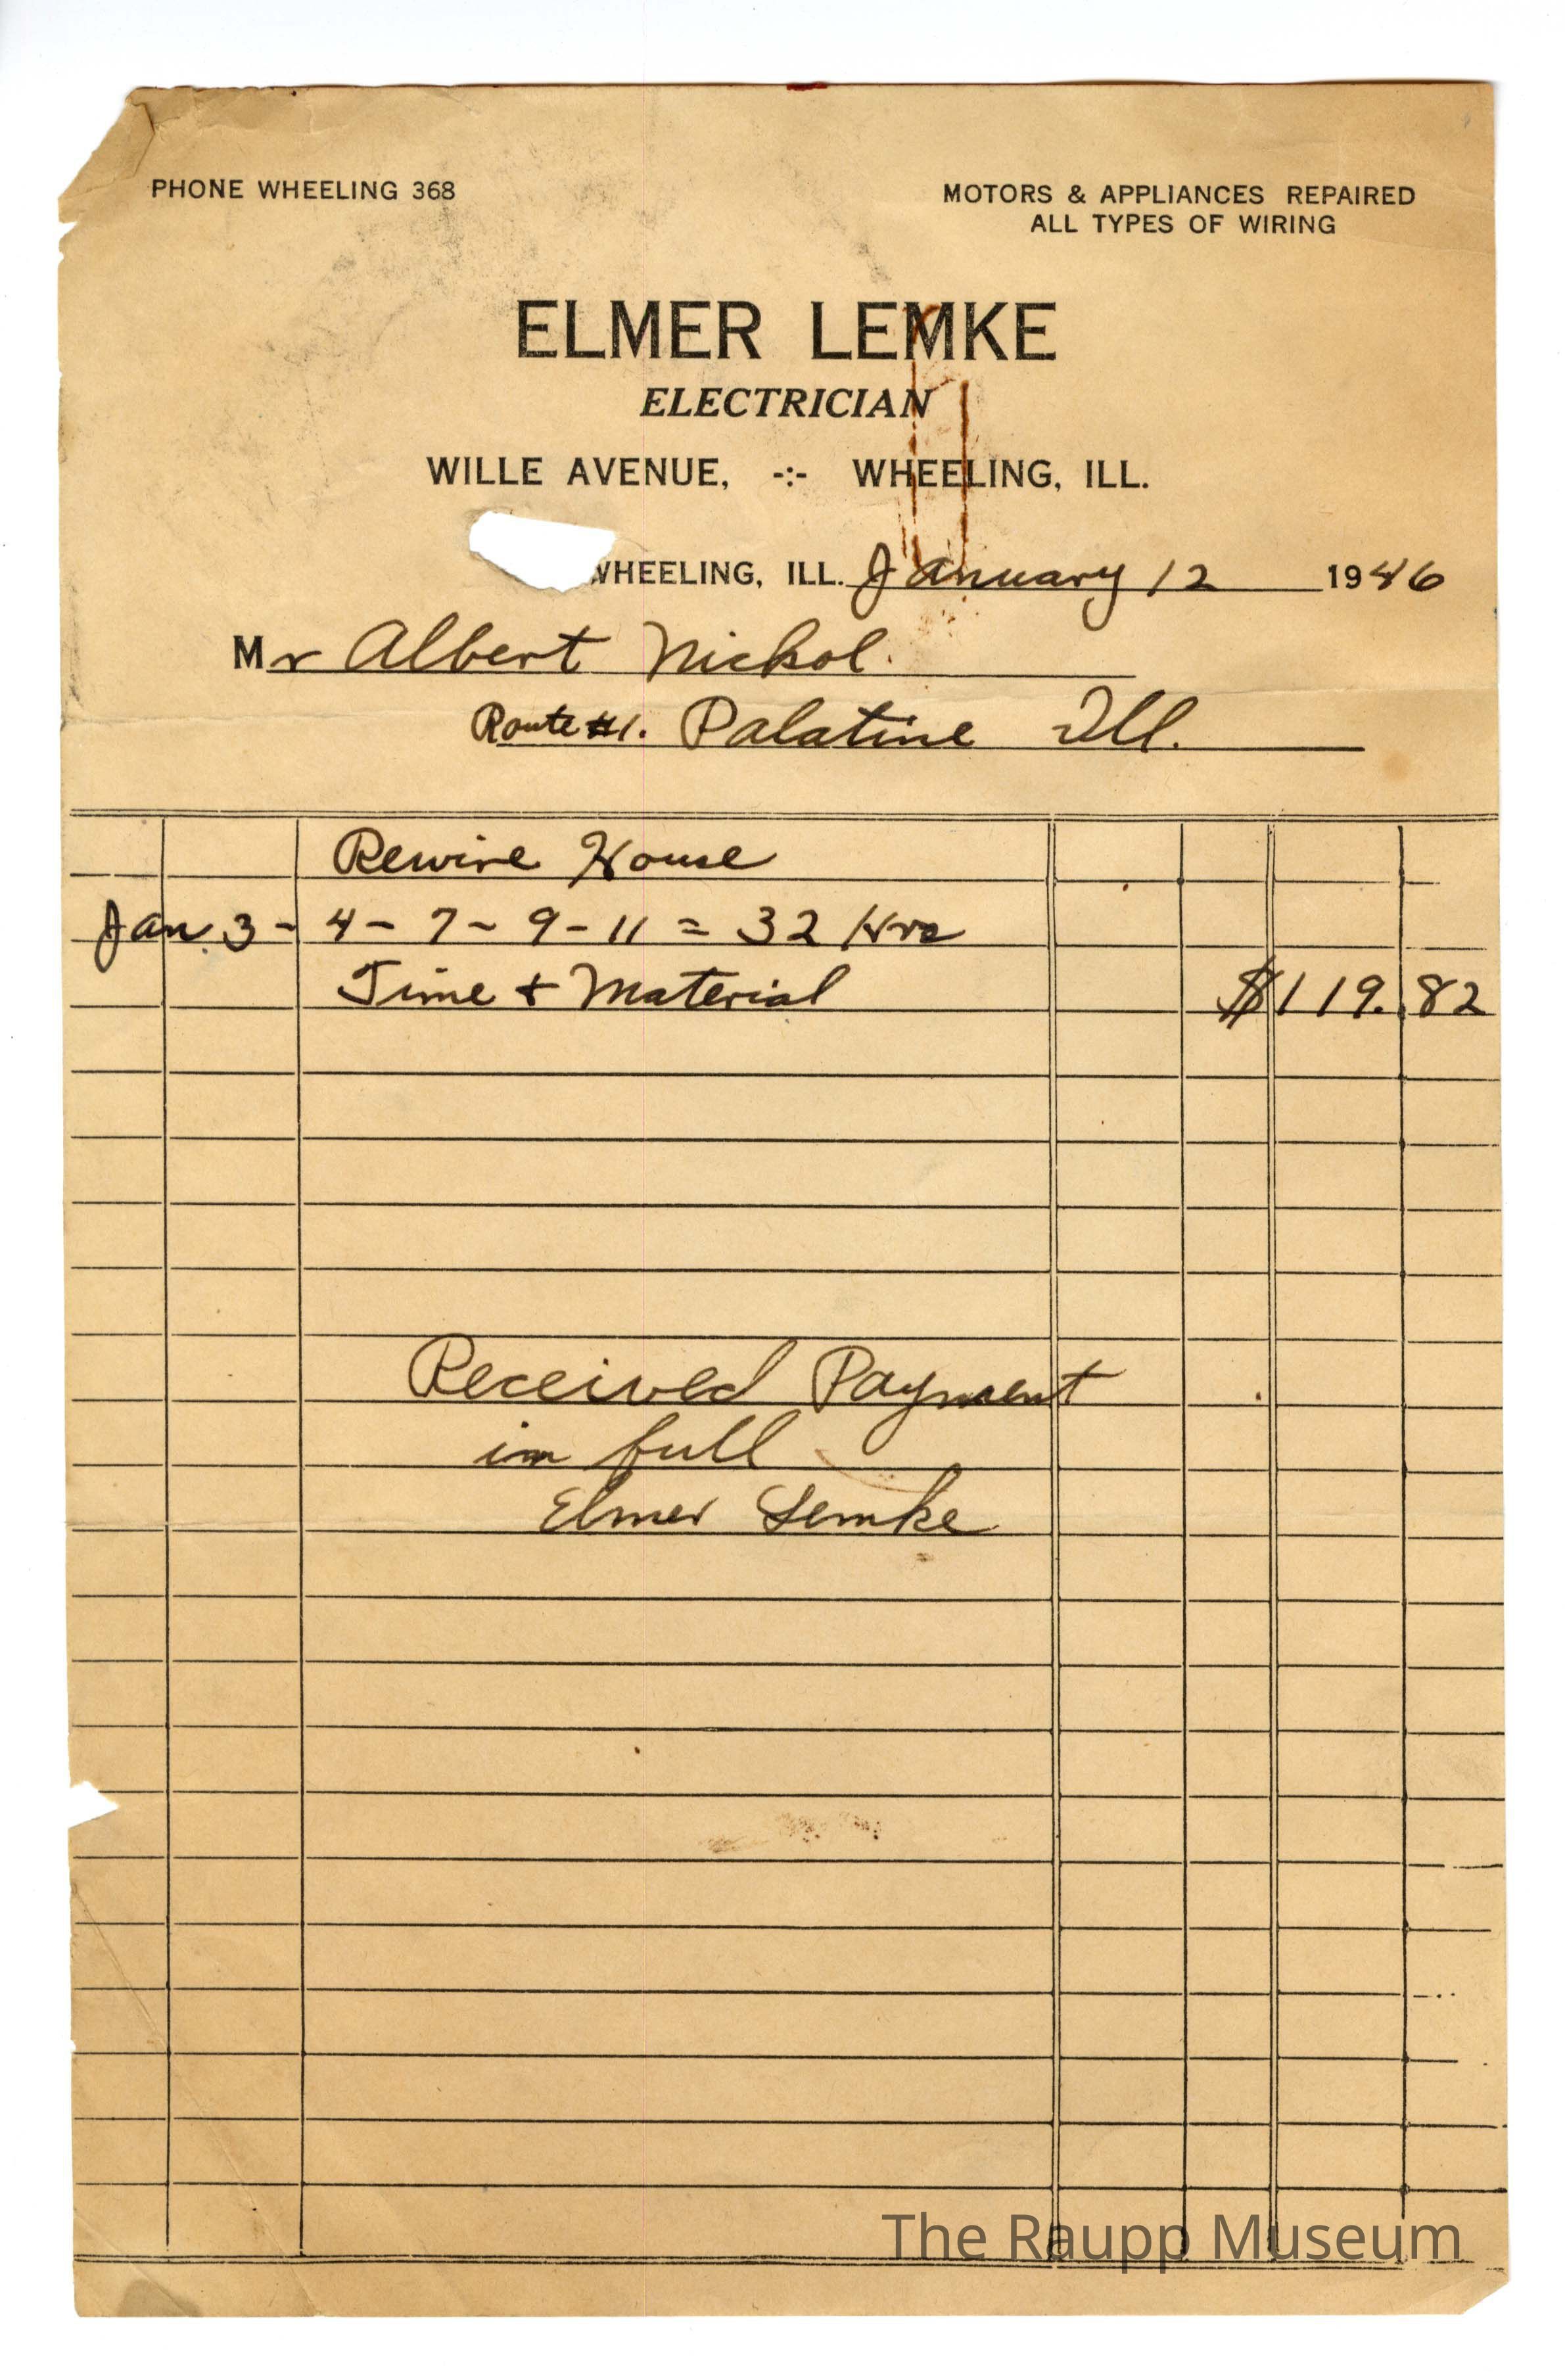 PHONE WHEELING 368
MOTORS & APPLIANCES REPAIRED
ALL TYPES OF WIRING
ELMER LEMKE
ELECTRICIAN
WILLE AVENUE, -:- WHEELING, ILL.
WHEELING, ILL. January 12 1946
Mr Albert Nickol.
Route #1. Palatine Ill.
Rewire House
Jan. 3 - 4 - 7 - 9 - 11 = 32 Hrs
Time + Material $119.82
Received Payment
in full
Elmer Lemke
The Raupp Museum